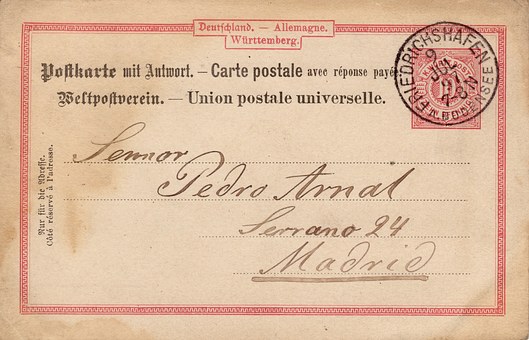 Deutschland. — Allemagne.
Württemberg.
Postkarte mit Antwort. — Carte postale avec réponse payée
Weltpostverein. — Union postale universelle.
FRIEDRICHSHAFEN
Sennor
Pedro Arnal
Serrano 24
Madrid
Nur für die Adresse.
Côté réservé à l'adresse.